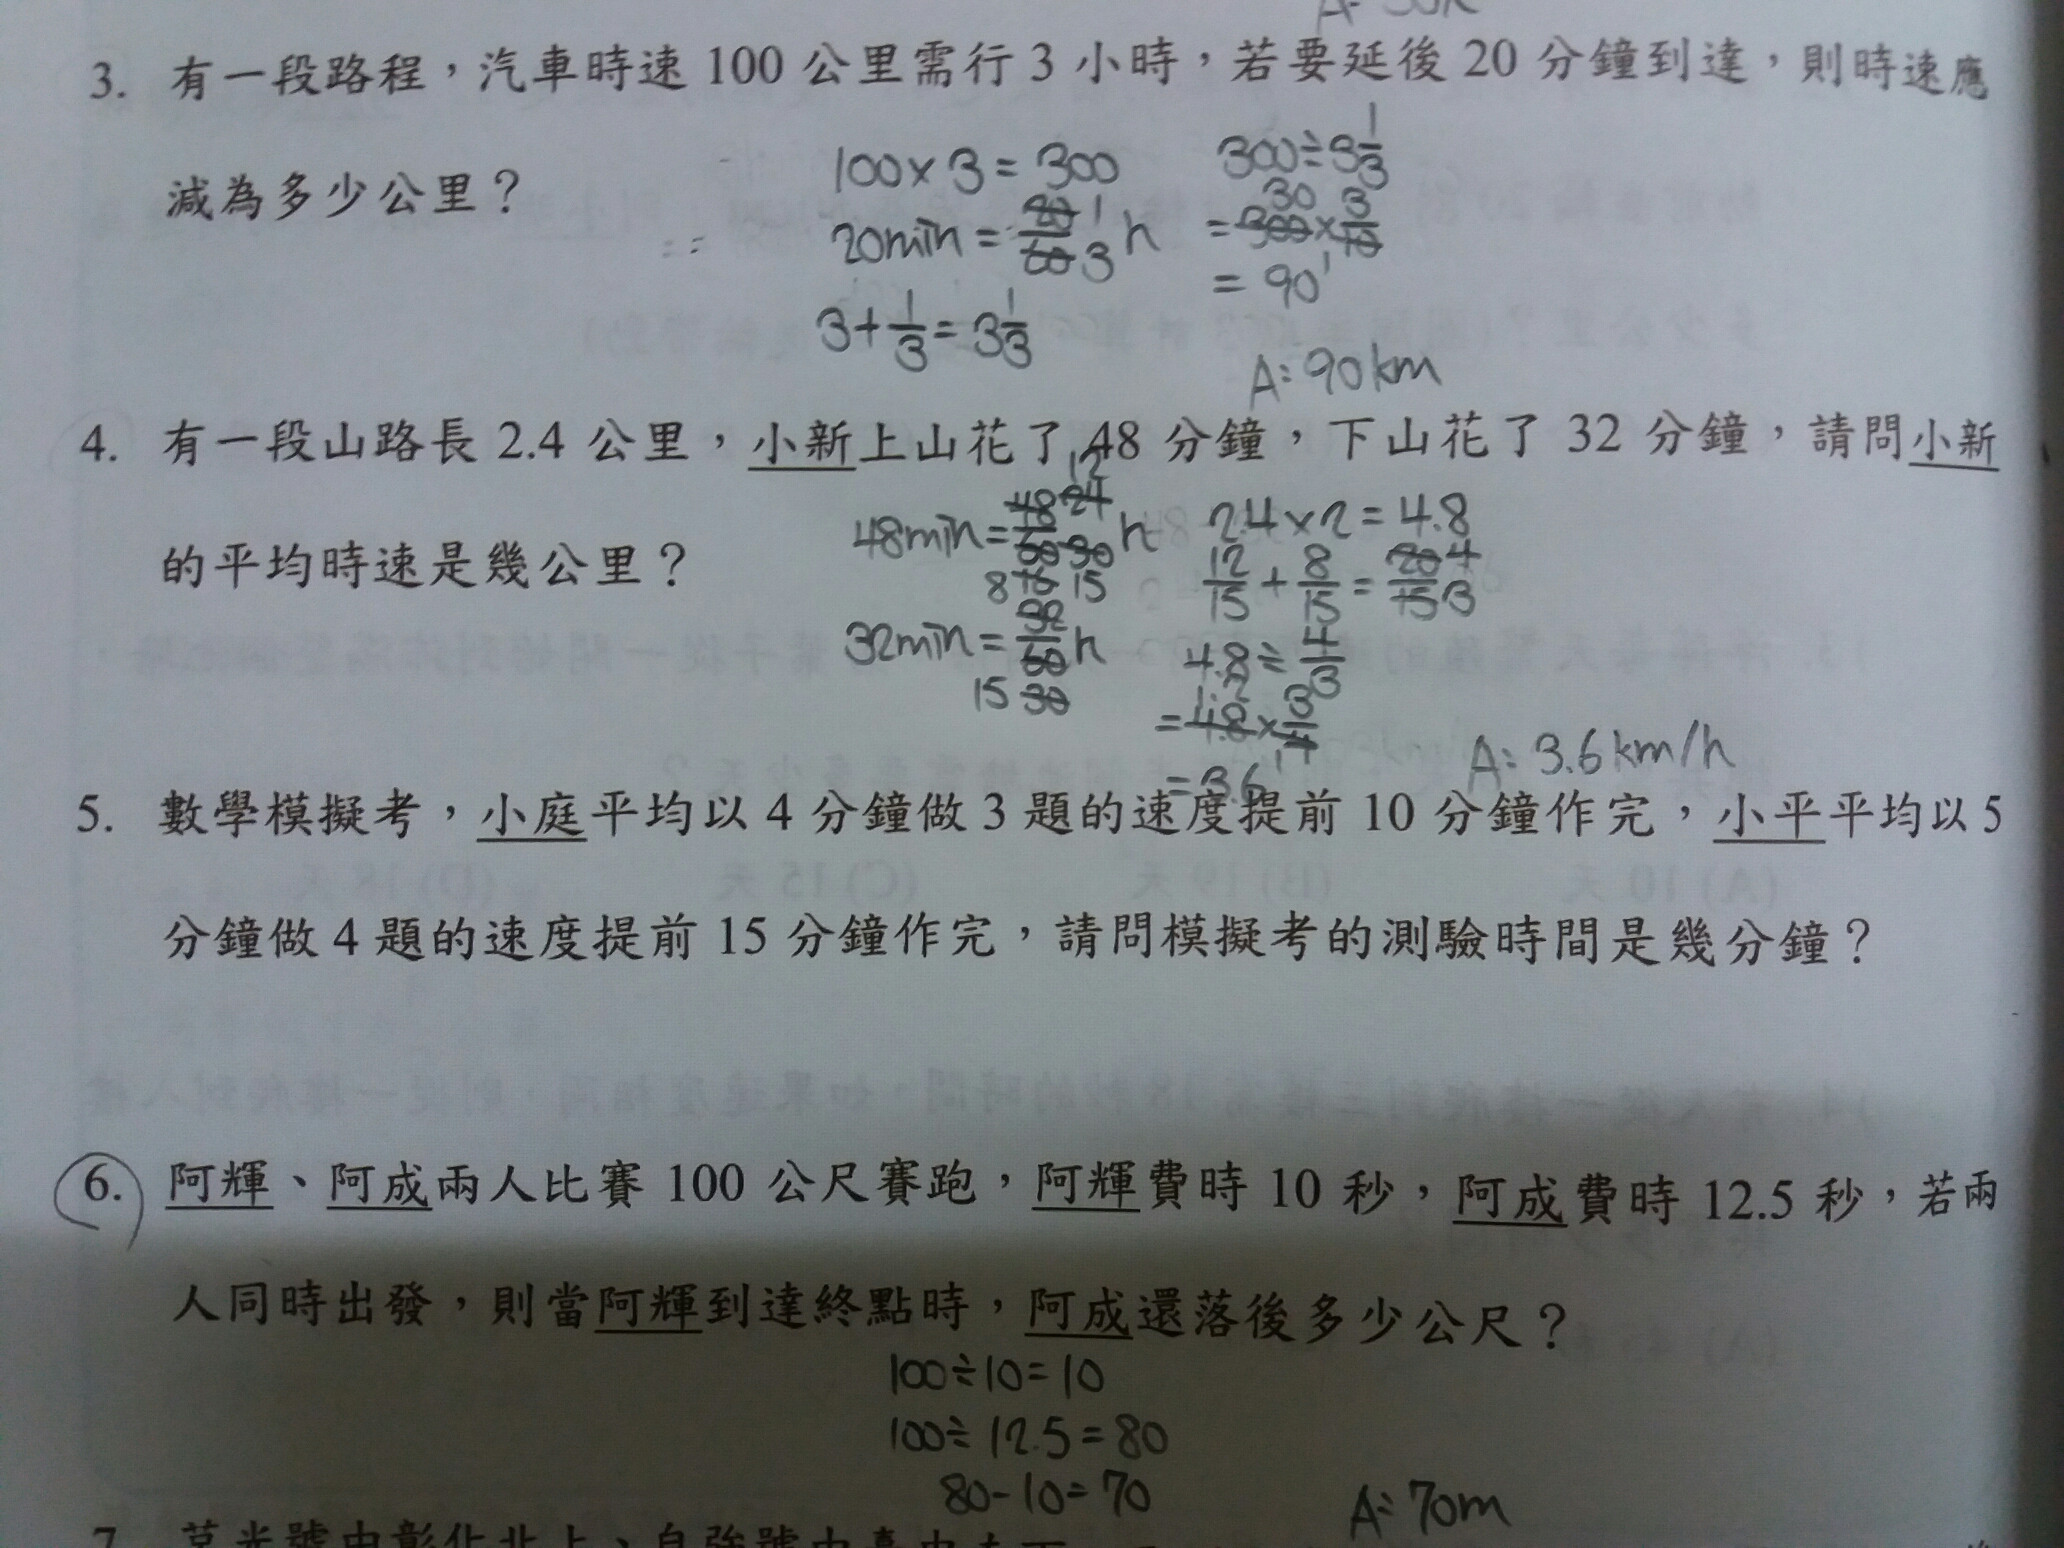 3. 有一段路程，汽車時速 100 公里需行 3 小時，若要延後 20 分鐘到達，則時速應
減為多少公里？
100×3=300
20min=20/60 1/3 h
3+1/3=3 1/3
300÷3 1/3
=300 30×3/10 1
=90
A:90km
4. 有一段山路長 2.4 公里，小新上山花了 48 分鐘，下山花了 32 分鐘，請問小新
的平均時速是幾公里？
48min=48/60 24/30 12/15 h
32min=32/60 16/30 8/15 h
2.4×2=4.8
12/15+8/15=20/15 4/3
4.8÷4/3
=4.8 1.2×3/4 1
=3.6
A:3.6km/h
5. 數學模擬考，小庭平均以 4 分鐘做 3 題的速度提前 10 分鐘作完，小平平均以 5
分鐘做 4 題的速度提前 15 分鐘作完，請問模擬考的測驗時間是幾分鐘？
6. 阿輝、阿成兩人比賽 100 公尺賽跑，阿輝費時 10 秒，阿成費時 12.5 秒，若兩
人同時出發，則當阿輝到達終點時，阿成還落後多少公尺？
100÷10=10
100÷12.5=80
80-10=70
A:70m